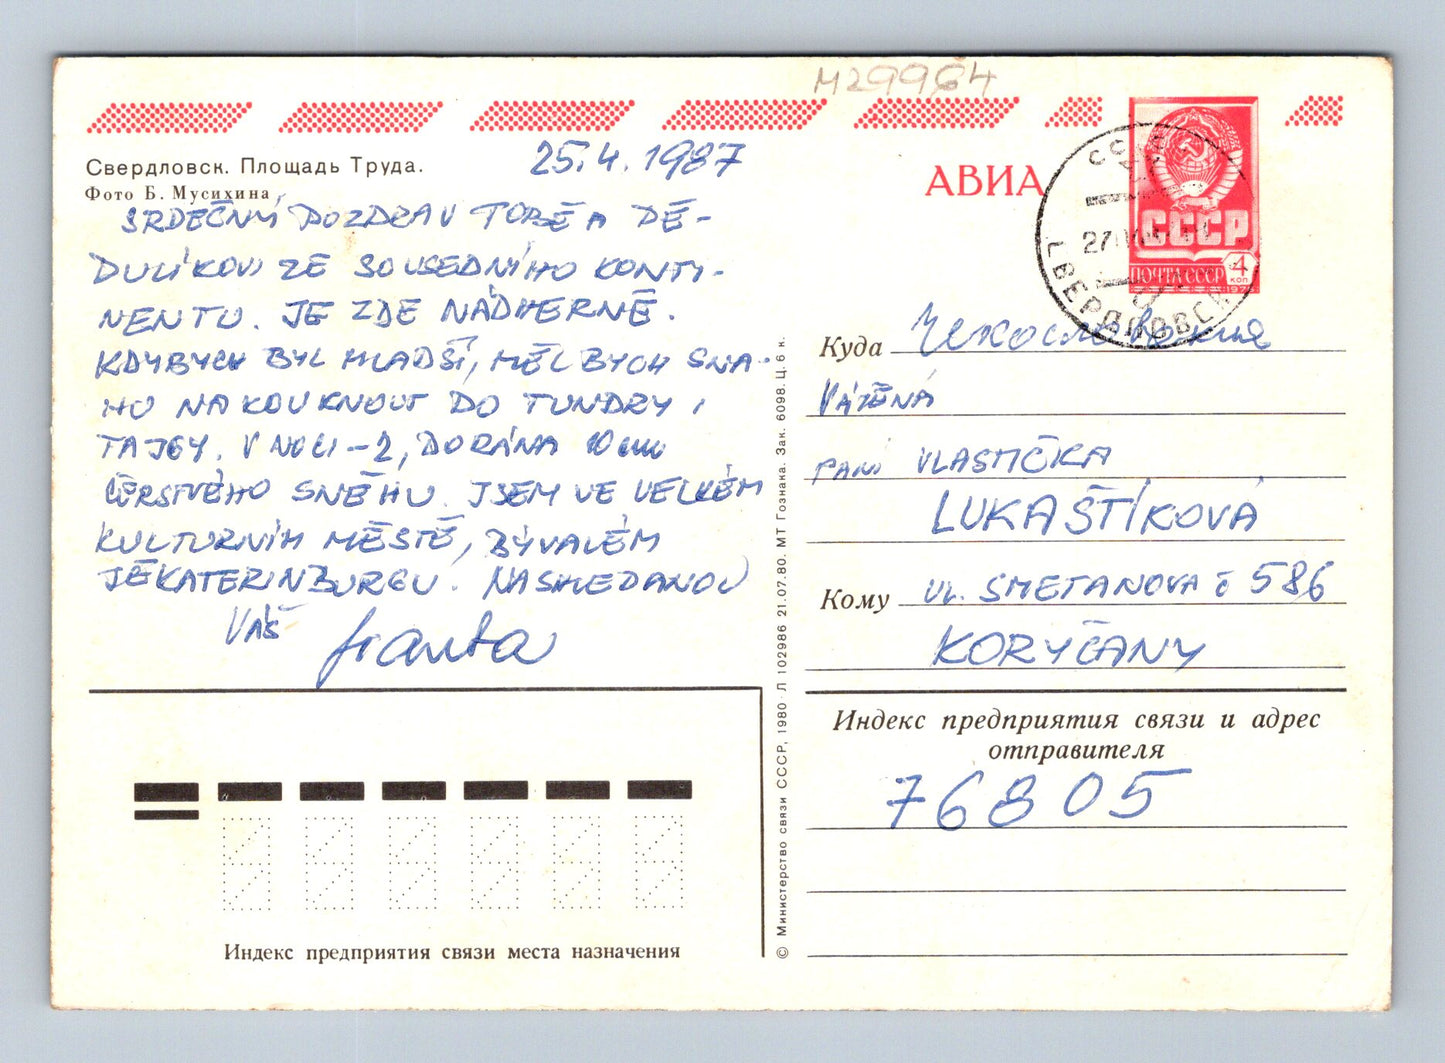 M29964
Свердловск. Площадь Труда.
Фото Б. Мусихина
25.4. 1987
SRDEČNÝ POZDRAV TOBĚ A DĚ-
DULÍKOVI ZE SOUSEDNÍHO KONTI-
NENTU. JE ZDE NÁDHERNĚ.
KDYBYCH BYL MLADŠÍ, MĚL BYCH SNA-
HU NAKOUKNOUT DO TUNDRY I
TAJGY. V NOCI -2, DO RÁNA 10 cm
ČERSTVÉHO SNĚHU. JSEM VE VELKÉM
KULTURNÍM MĚSTĚ, BÝVALÉM
JEKATERINBURGU. NASHLEDANOU
VÁŠ Franta
Индекс предприятия связи места назначения
© Министерство связи СССР, 1980. Л 102986 21.07.80. МТ Гознака. Зак. 6098. Ц. 6 к.
АВИА
СССР
ПОЧТА СССР 4
КОП
27
СВЕРДЛОВСК
Куда Чехословакия
VÁŽENÁ
PANÍ VLASTIČKA
LUKAŠTÍKOVÁ
Кому UL. SMETANOVA č 586
KORYČANY
Индекс предприятия связи и адрес
отправителя
76805